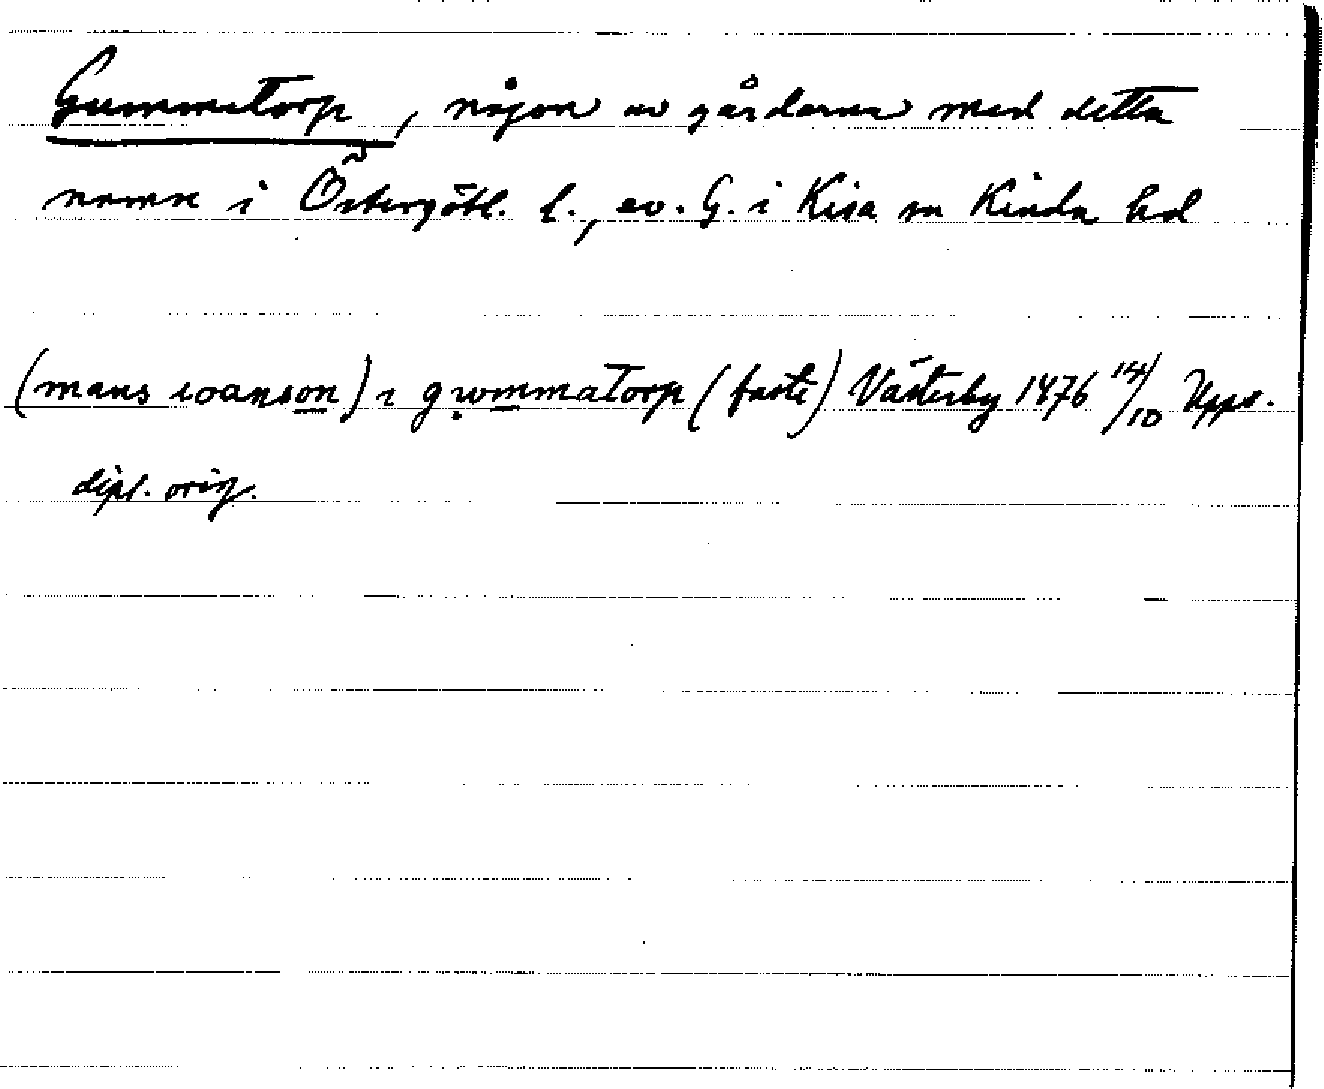 Gummetorp, någon av gårdarna med detta
namn i Östergötl. l., ev. G. i Kisa sn Kinda hd
(mans ioanson) i gwmmatorp (faste) Västerby 1476 14/10 Upps.
dipl. orig.